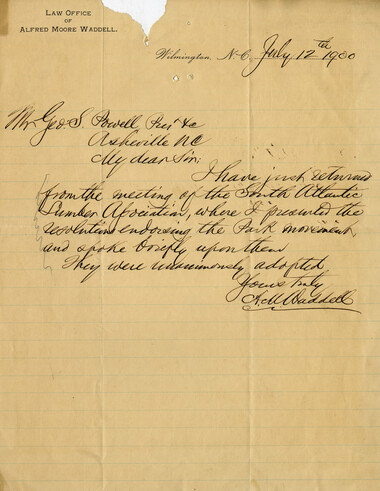 LAW OFFICE
OF
ALFRED MOORE WADDELL.
Wilmington, N.C., July 12th 1900
Mr Geo. S. Powell Pres &c
Asheville NC
My dear Sir:
I have just returned
from the meeting of the South Atlantic
Lumber Association, where I presented the
resolutions endorsing the Park movement
and spoke briefly upon them
They were unanimously adopted
Yours truly
A. M. Waddell